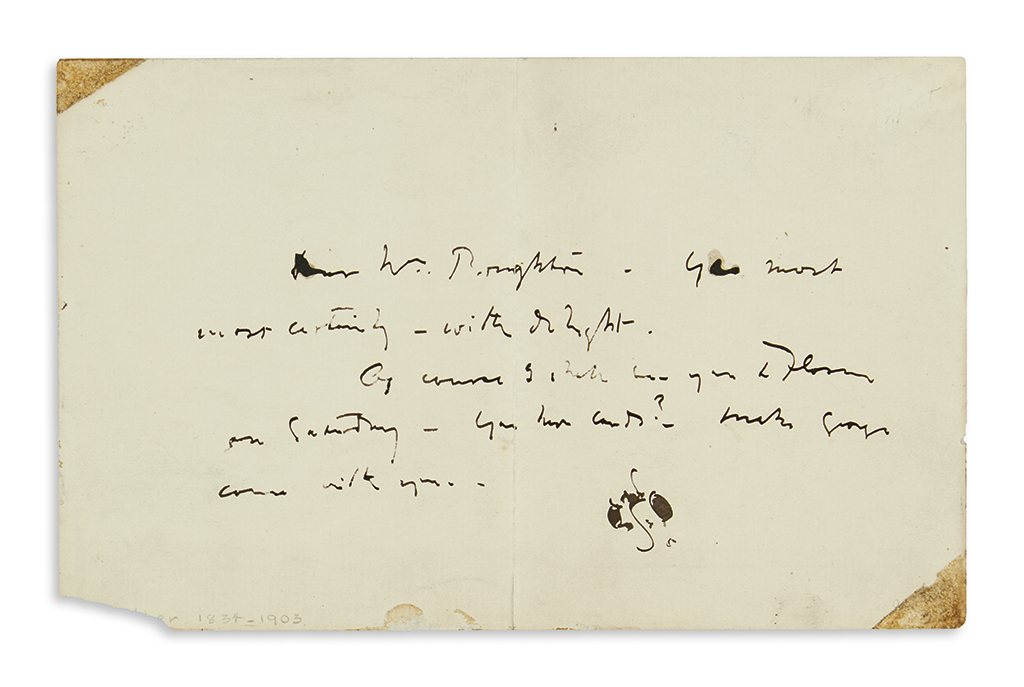 Dear Mrs. Boughton - Yes most
most certainly - with delight.
Of course I shall see you &
on Saturday - You have cards? - make George
come with you. -
1834-1903